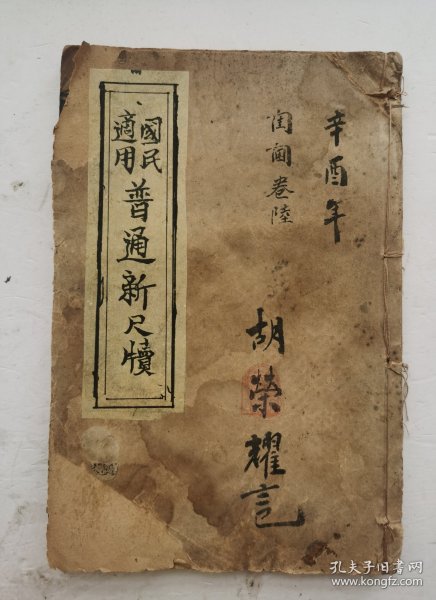 辛酉年
卷陸
胡榮耀
國民
適用
普通新尺牘
孔夫子旧书网
www.kongfz.com